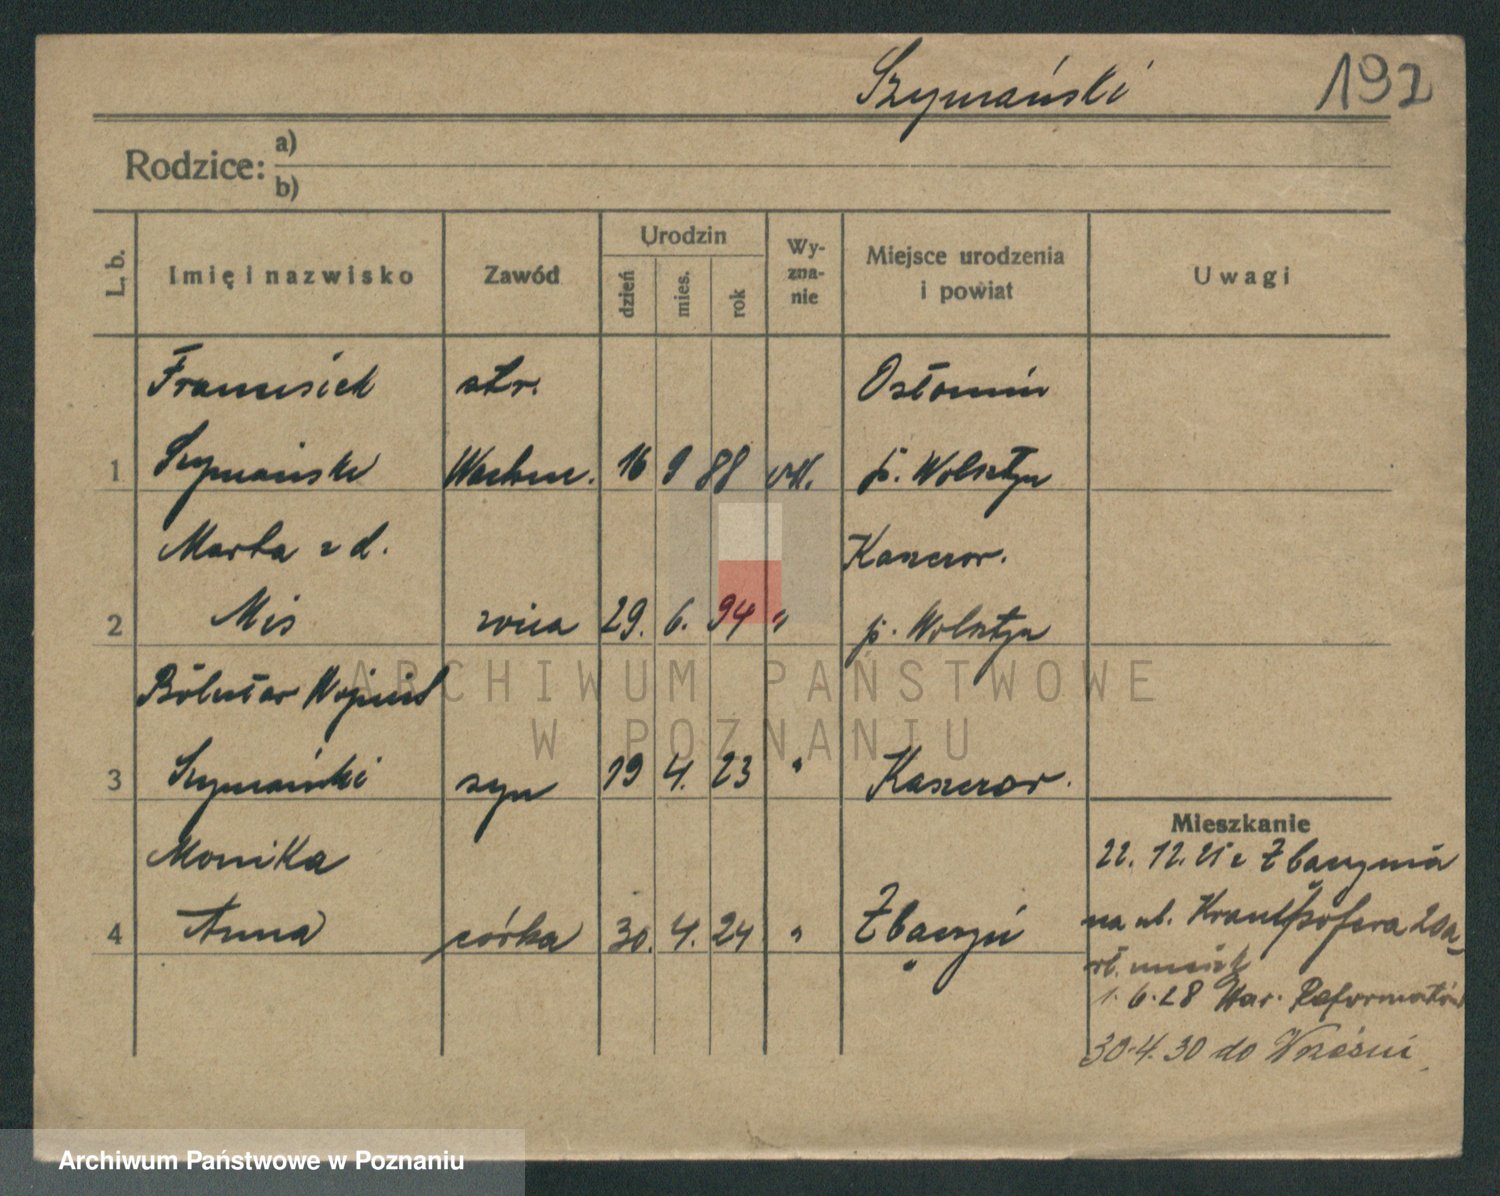 Szymański 192
Rodzice: a)
b)
L. b. Imię i nazwisko Zawód Urodzin dzień mies. rok Wyznanie Miejsce urodzenia i powiat Uwagi
Franciszek str. Osłonin
1 Szymański Wachm. 16 9 88 p. Wolsztyn
Marta z d. Kaszczor.
2 Mis żona 29. 6. 94 " p. Wolsztyn
Bolesław Wojciech
3 Szymański syn 19 4. 23 " Kaszczor.
Mieszkanie
Monika 22. 12. z Zbąszynia
4 Anna córka 30. 4. 24 " Zbąszyń na ul. 20a
1. 6. 28 Reformatów
30.4.30 do Wrześni
ARCHIWUM PAŃSTWOWE
W POZNANIU
Archiwum Państwowe w Poznaniu